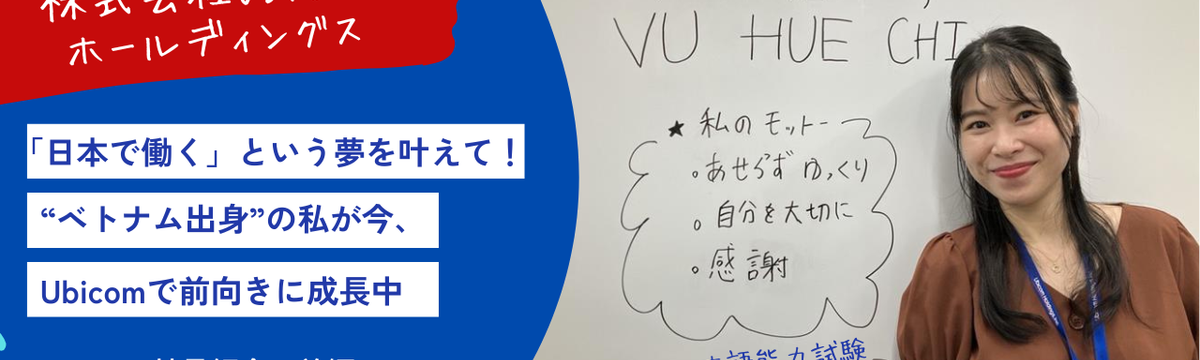 株式会社
ホールディングス
「日本で働く」という夢を叶えて！
“ベトナム出身”の私が今、
Ubicomで前向きに成長中
VU HUE CHI
★ 私のモットー
。あせらず ゆっくり
。自分を大切に
。感謝
語能力試験